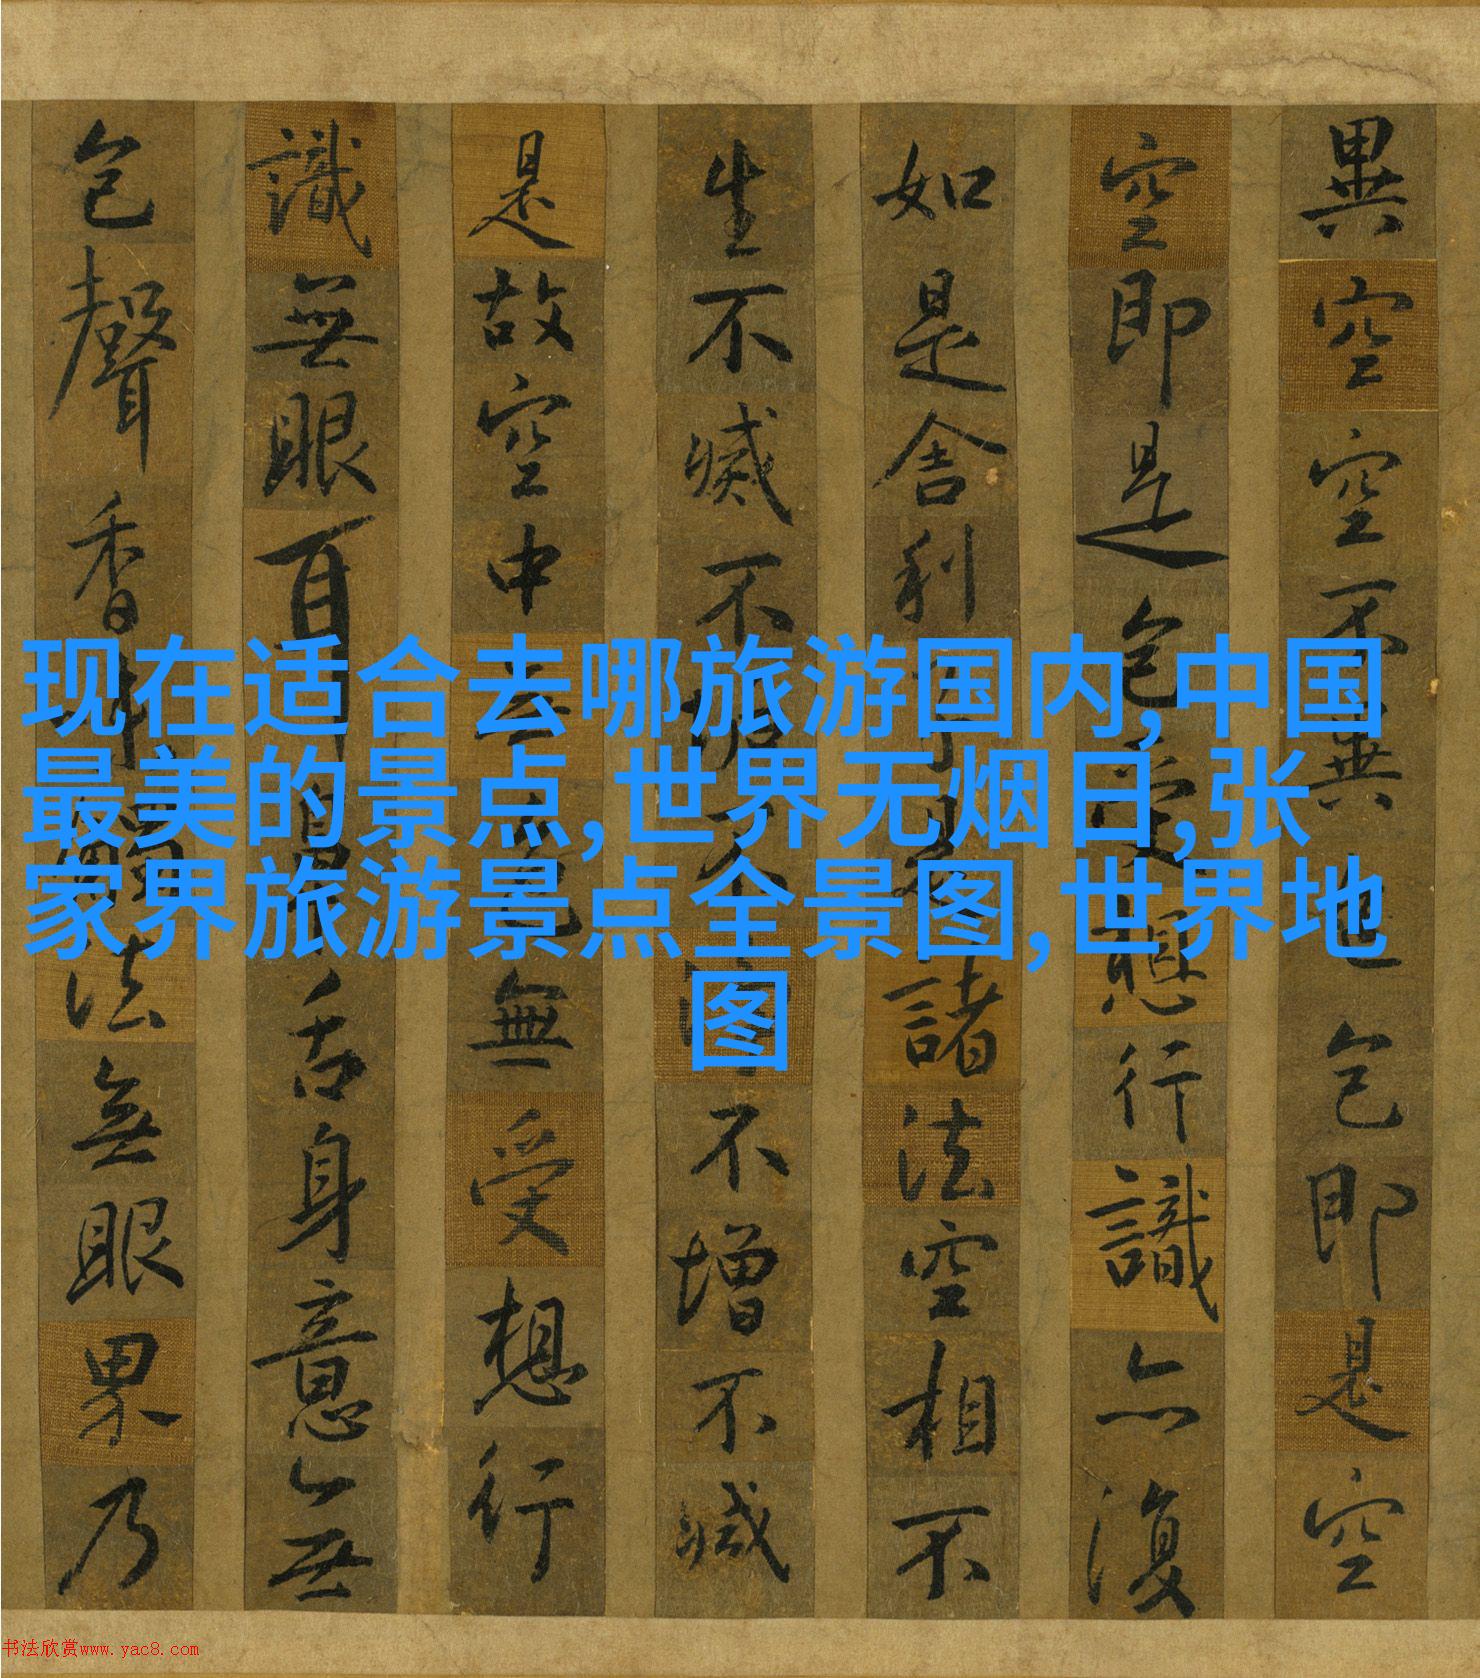 異空空不異色色即是空
空即是色受想行識亦復
如是舍利子是諸法空相不
生不滅不垢不淨不增不減
是故空中無色無受想行
識無眼耳鼻舌身意無
色聲香味觸法無眼界乃
现在适合去哪旅游国内,中国
最美的景点,世界无烟日,张
家界旅游景点全景图,世界地
图
书法欣赏www.yac8.com